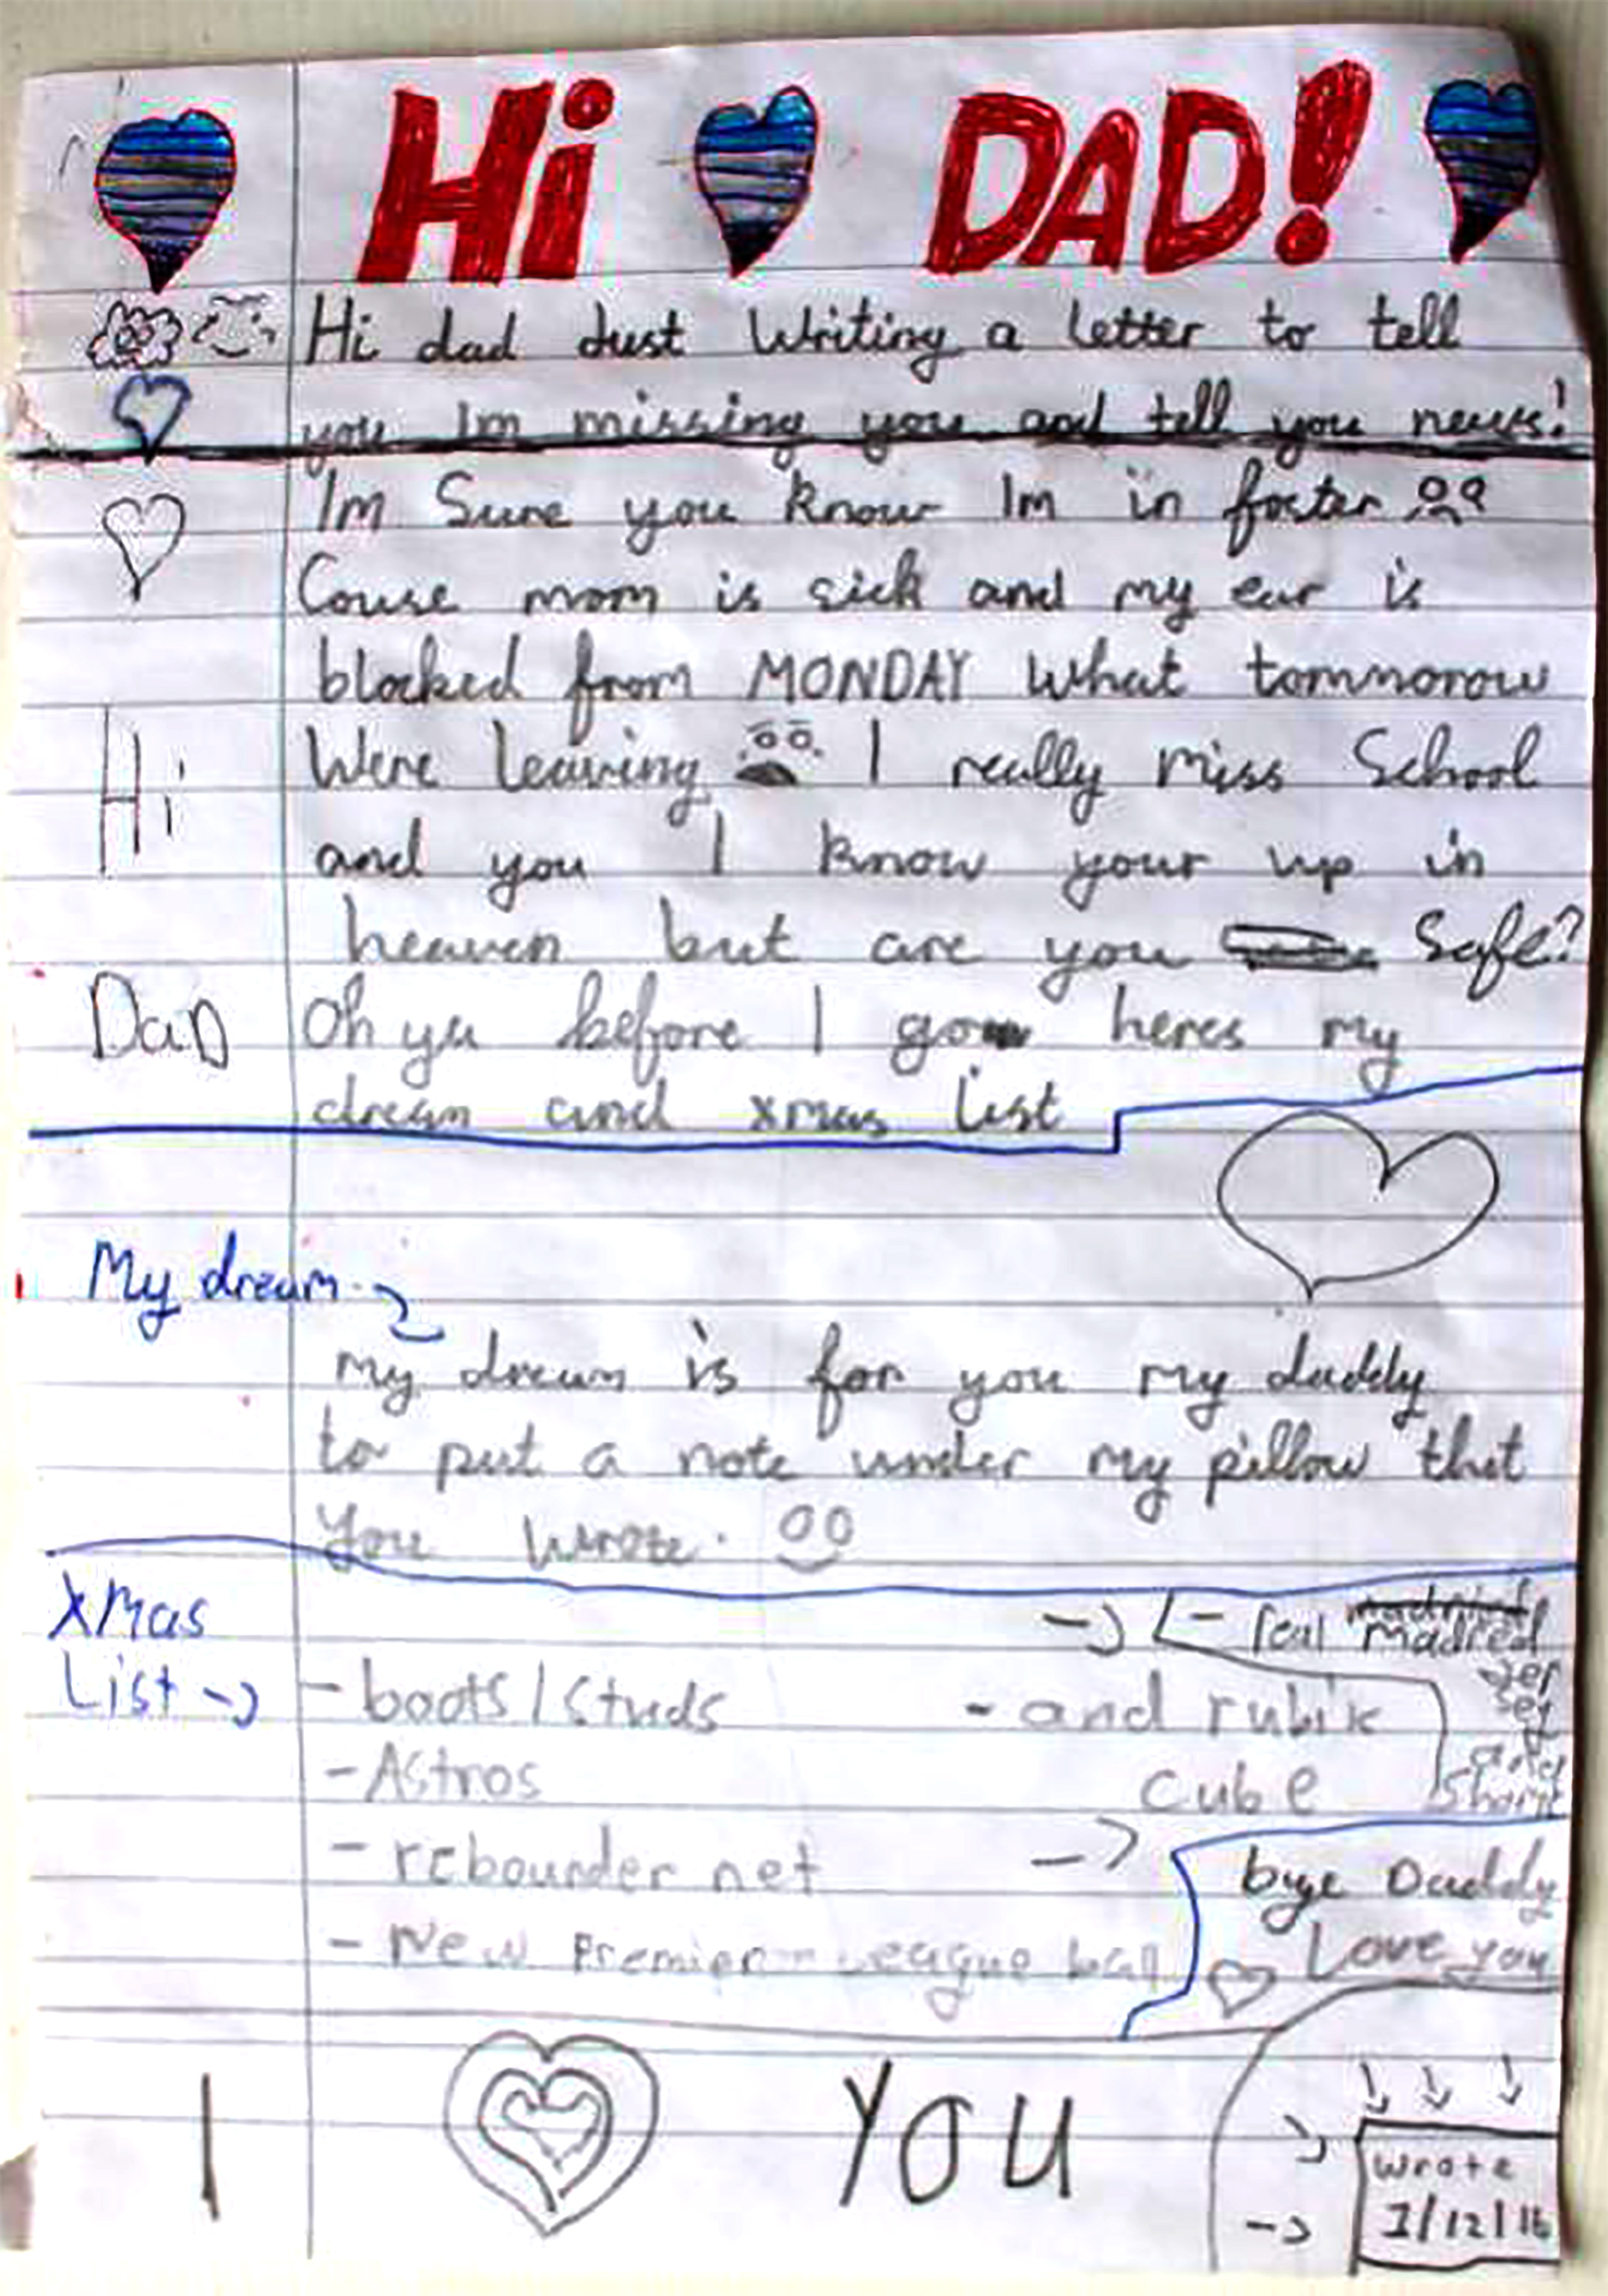 Hi DAD!
Hi dad Just Writing a letter to tell
you Im missing you and tell you news!
Im Sure you know Im in foster
Couse mom is sick and my ear is
blocked from MONDAY What tommorow
Were leaving I really miss School
Hi
and you I know your up in
heaven but are you Safe?
Dad
Oh ya before I go heres my
dream and xmas list
My dream
my dream is for you my daddy
to put a note under my pillow that
you wrote.
Xmas
List
- boots/studs
- Astros
- rebounder net
- New Premier League ball
- real madrid madred
jer
sey
and
shorts
- and rubik
cube
bye Daddy
Love you
I YOU
Wrote
1/12/16